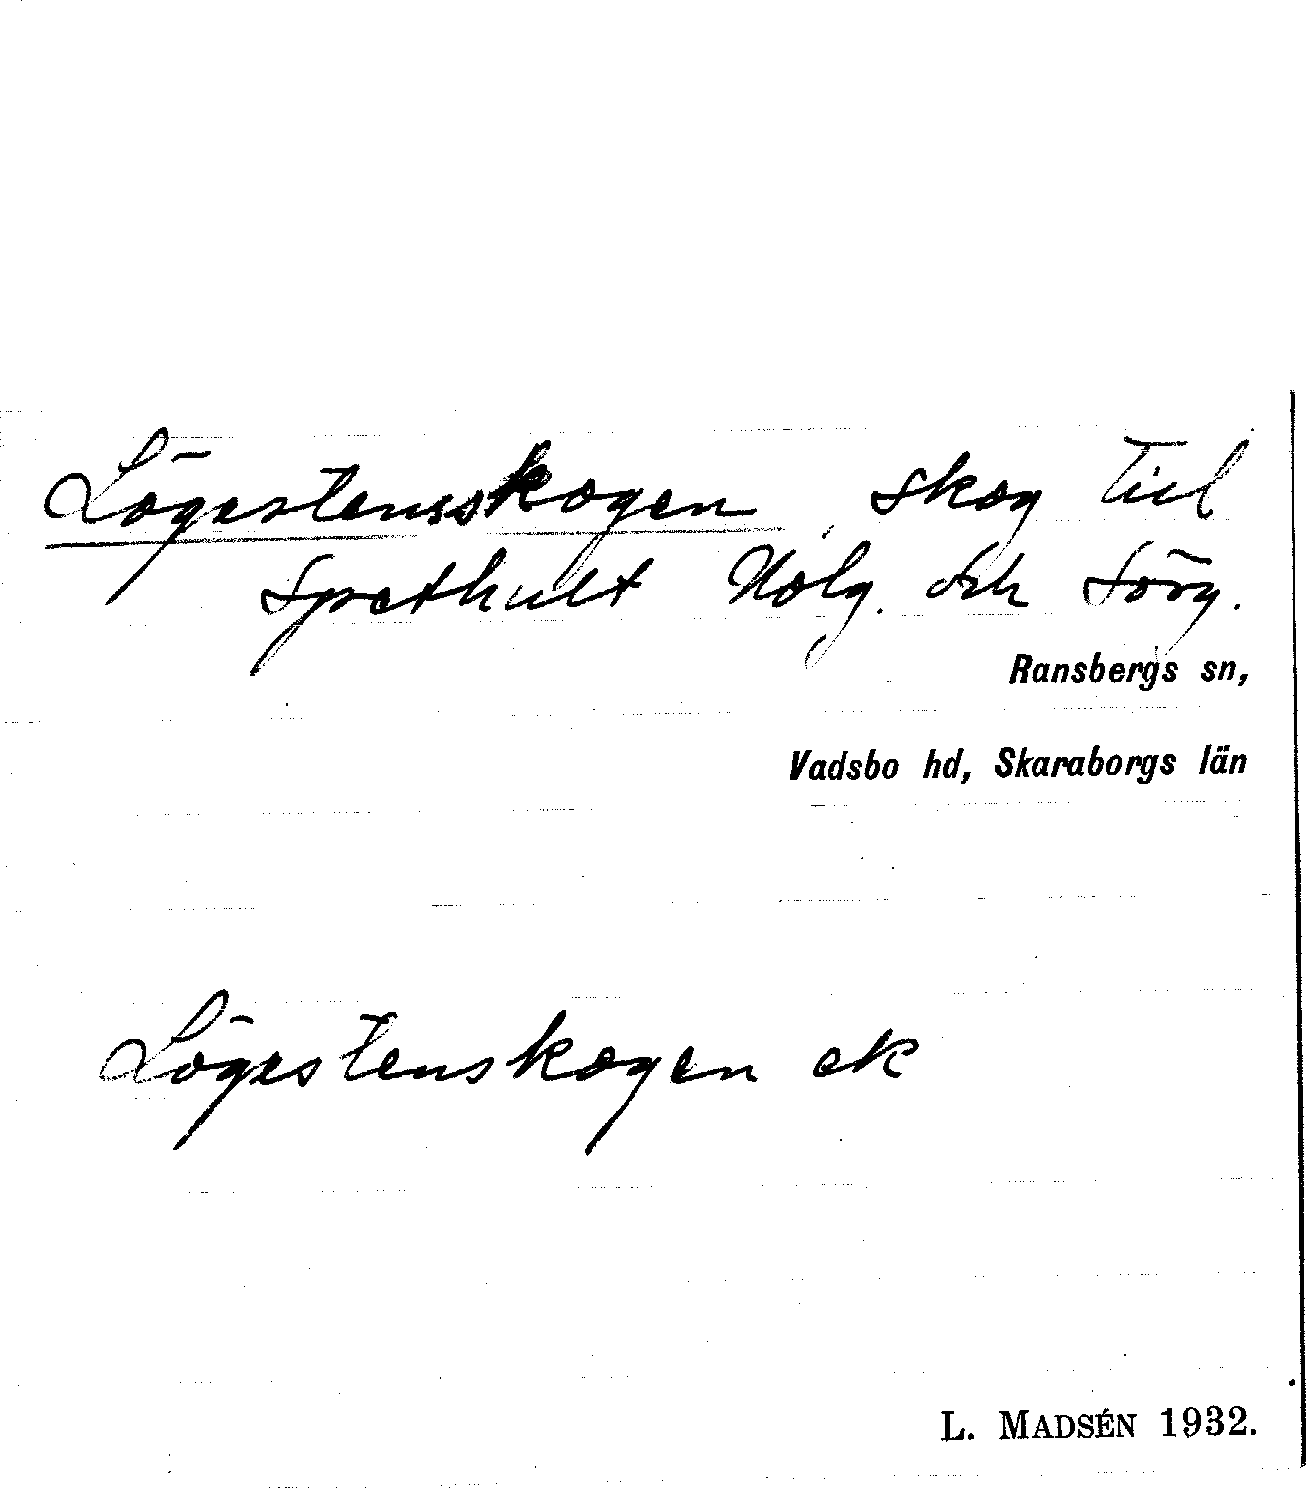 Lögestensskogen, skog till
Sprethult Nolg. och Sörg.
Ransbergs sn,
Vadsbo hd, Skaraborgs län
Lögestenskogen ek
L. MADSÉN 1932.